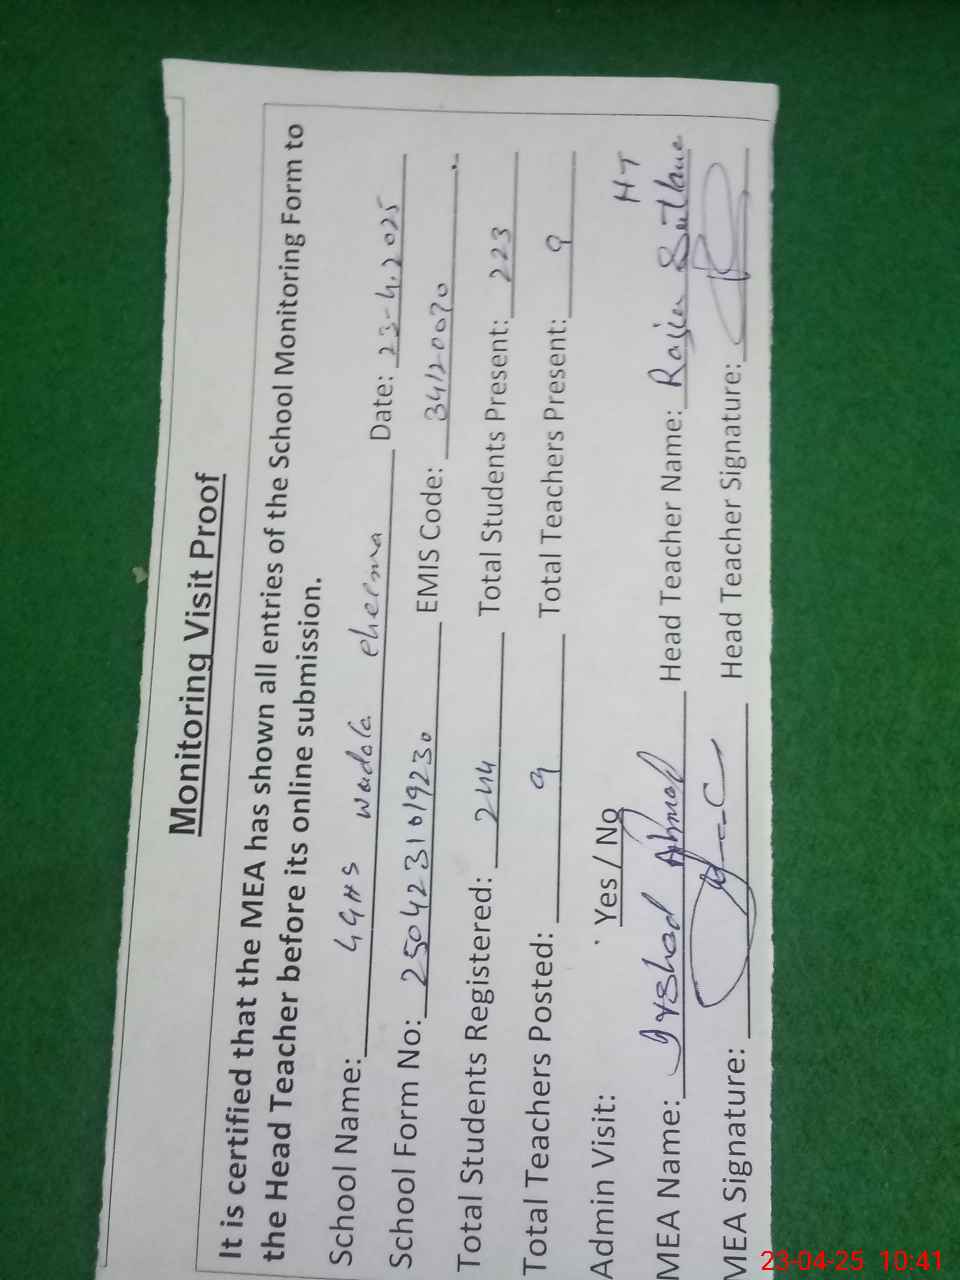 Monitoring Visit Proof
It is certified that the MEA has shown all entries of the School Monitoring Form to
the Head Teacher before its online submission.
School Name: GGHS wadala cheema Date: 23-4.2025
School Form No: 2504231019230 EMIS Code: 34120070
Total Students Registered: 244 Total Students Present: 223
Total Teachers Posted: 9 Total Teachers Present: 9
Admin Visit: Yes / No HT
MEA Name: Irshad Ahmad Head Teacher Name:
MEA Signature: Head Teacher Signature:
23-04-25 10:41